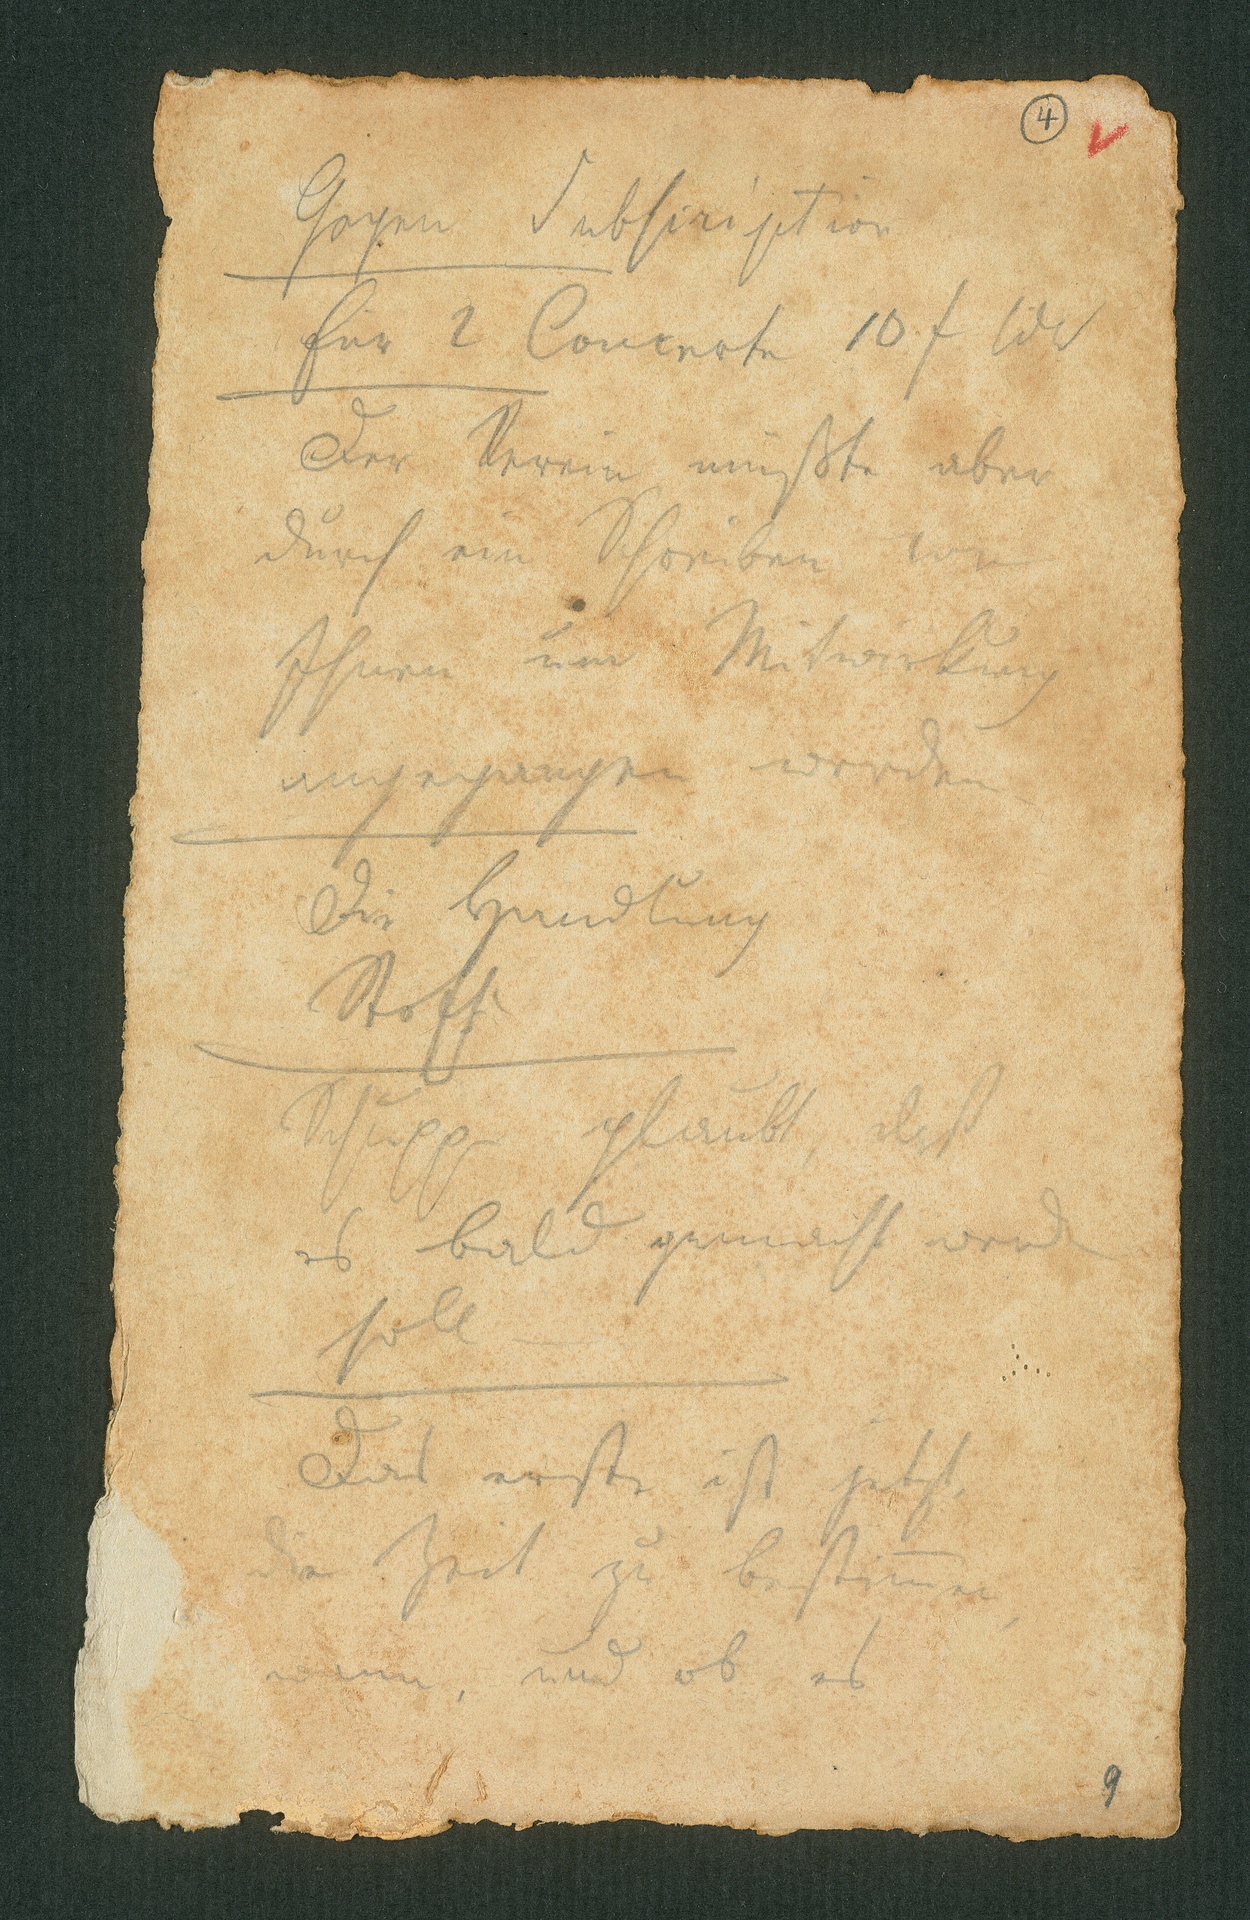 4
Gegen Subscription
für 2 Concerte 10 f
Der Verein müßte aber
durch ein Schreiben von
Ihnen um Mitwirkung
angegangen werden
Die Handlung
Stoff.
Schupp glaubt, daß
es bald gemacht werden
soll —
Das erste ist jetzt,
die Zeit zu bestim̅en,
wann, und ob es
9